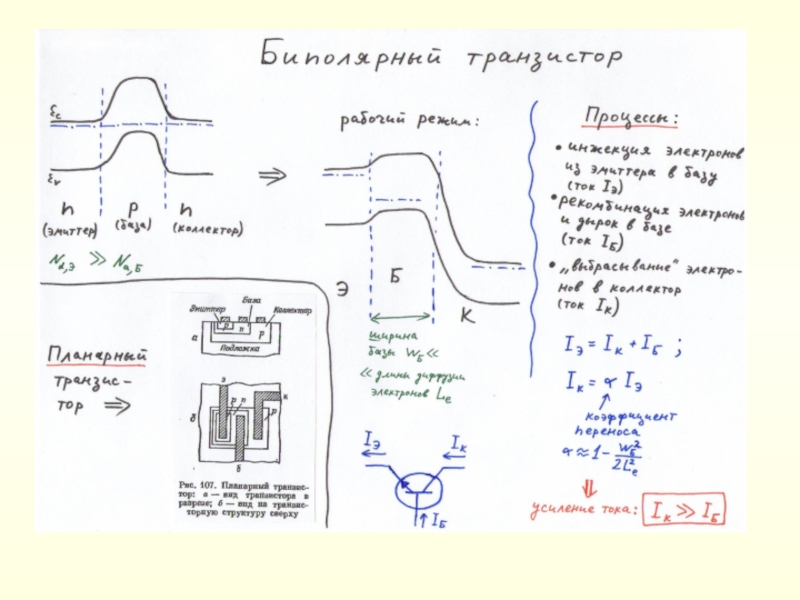 Биполярный транзистор
εc
εv
n
p
n
(эмиттер)
(база)
(коллектор)
Nd,Э ≫ Na,Б
⇒
рабочий режим:
Э
Б
К
ширина
базы WБ ≪
≪ длины диффузии
электронов Le
Процессы:
• инжекция электронов
из эмиттера в базу
(ток IЭ)
• рекомбинация электронов
и дырок в базе
(ток IБ)
• „выбрасывание" электро-
нов в коллектор
(ток IК)
IЭ = IК + IБ ;
IК = α IЭ
коэффициент
переноса
α ≈ 1 - WБ²/2Le²
усиление тока: IК ≫ IБ
Планарный
транзис-
тор ⇒
Эмиттер
База
Коллектор
а
p
n
p
Подложка
э
p
n
к
б
p
б
Рис. 107. Планарный транзис-
тор: а — вид транзистора в
разрезе; б — вид на транзис-
торную структуру сверху
IЭ
IК
IБ